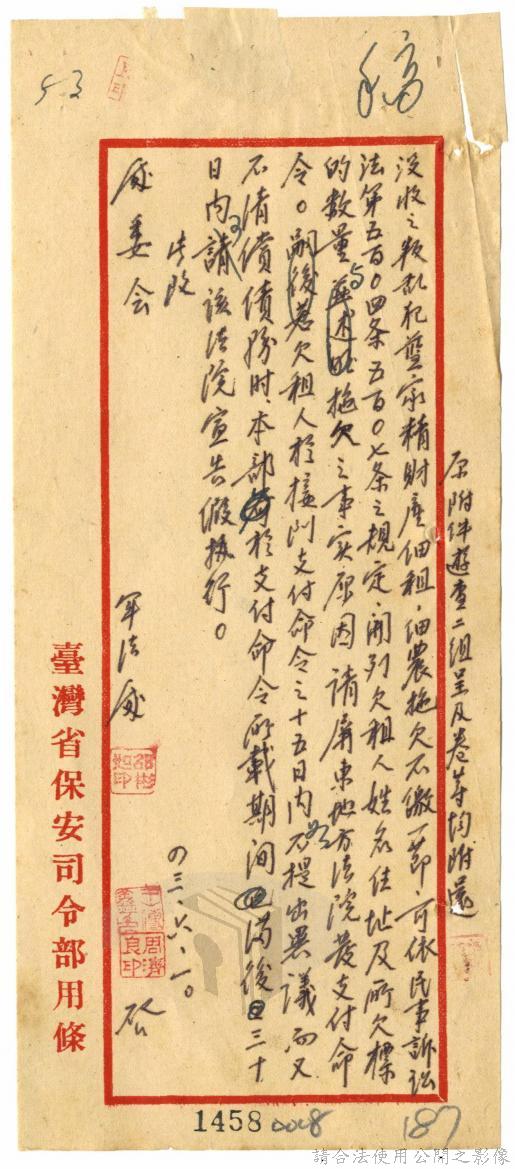 稿
原附件游查二組呈及卷等均附還
没收之叛乱犯藍家精財產佃租,佃農拖欠不缴一節,可依民事訴訟
法第五百〇四条五百〇七条之規定,開列欠租人姓名住址及所欠標
的数量与拖欠之事实原因請屏東地方法院發支付命
令。嗣後若欠租人於接到支付命令之十五日内不提出異議而又
不清償債務時,本部於支付命令所載期间满後三十
日内請該法院宣告假执行。
此致
處委会
軍法處
四三、六、一〇
啟
臺灣省保安司令部用條
1458
0008
187
請合法使用公開之影像